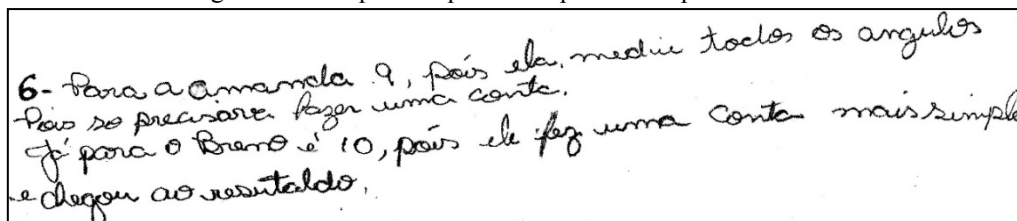 6- Para a Amanda 9, pois ela, mediu todos os angulos
Pois so precisava fazer uma conta.
Já para o Breno é 10, pois ele fez uma conta mais simple
e chegou ao resutaldo.